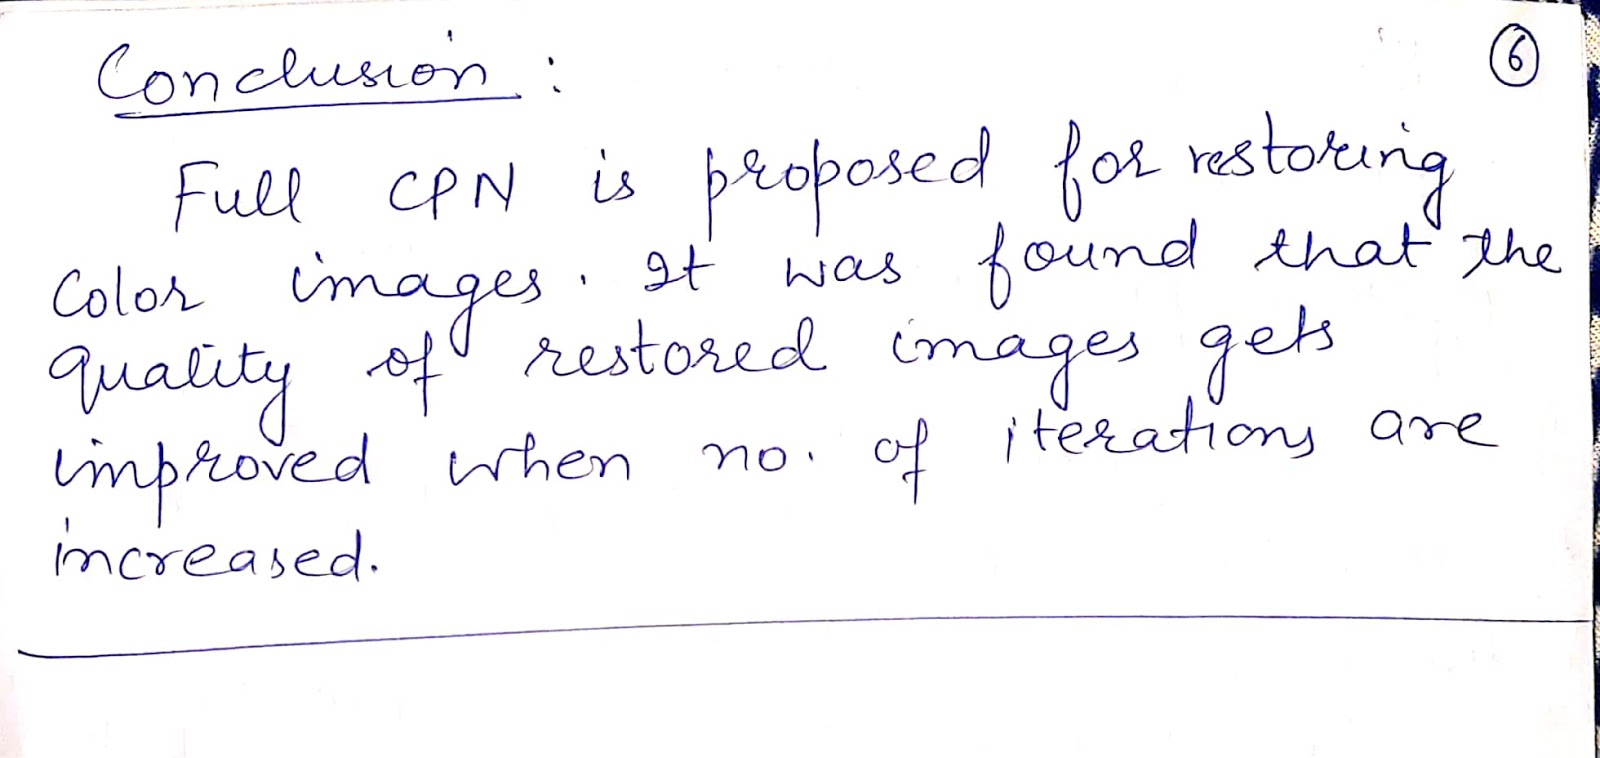 Conclusion :
6
Full CPN is proposed for restoring
color images. It was found that the
quality of restored images gets
improved when no. of iterations are
increased.